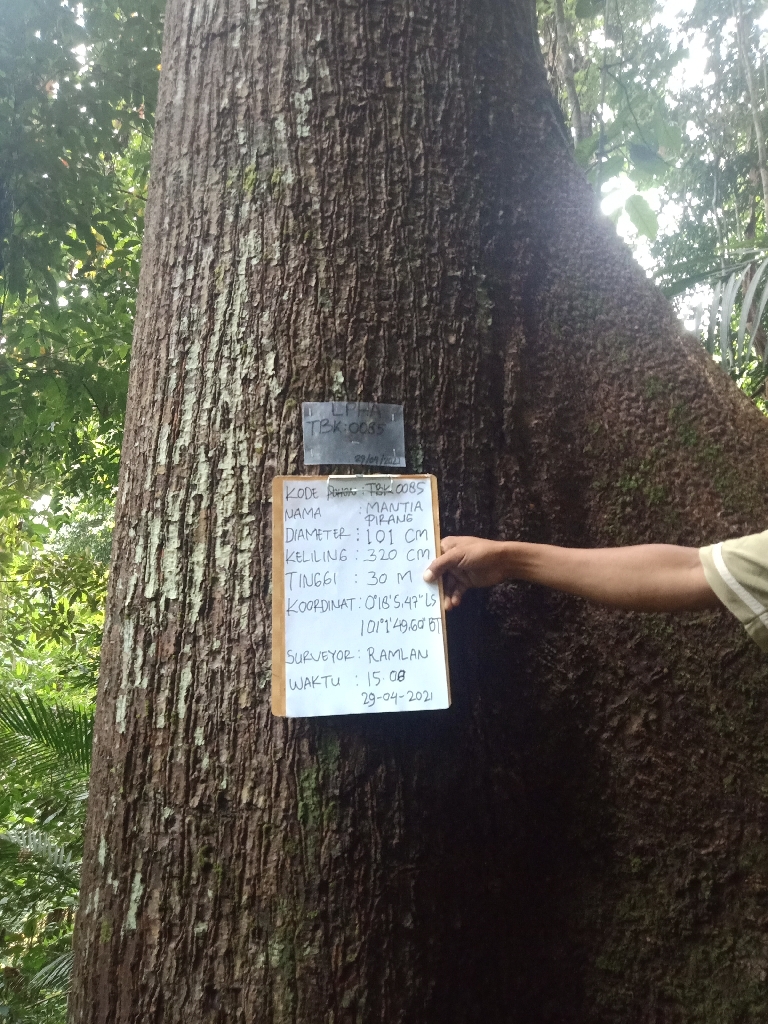 LPHA
TBK:0085
29/04/2021
KODE POHON : TBK 0085
NAMA : MANTIA
PIRANG
DIAMETER : 101 CM
KELILING : 320 CM
TINGGI : 30 M
KOORDINAT : 0°18'5,47" LS
101°1'49,60" BT
SURVEYOR : RAMLAN
WAKTU : 15:08
29-04-2021